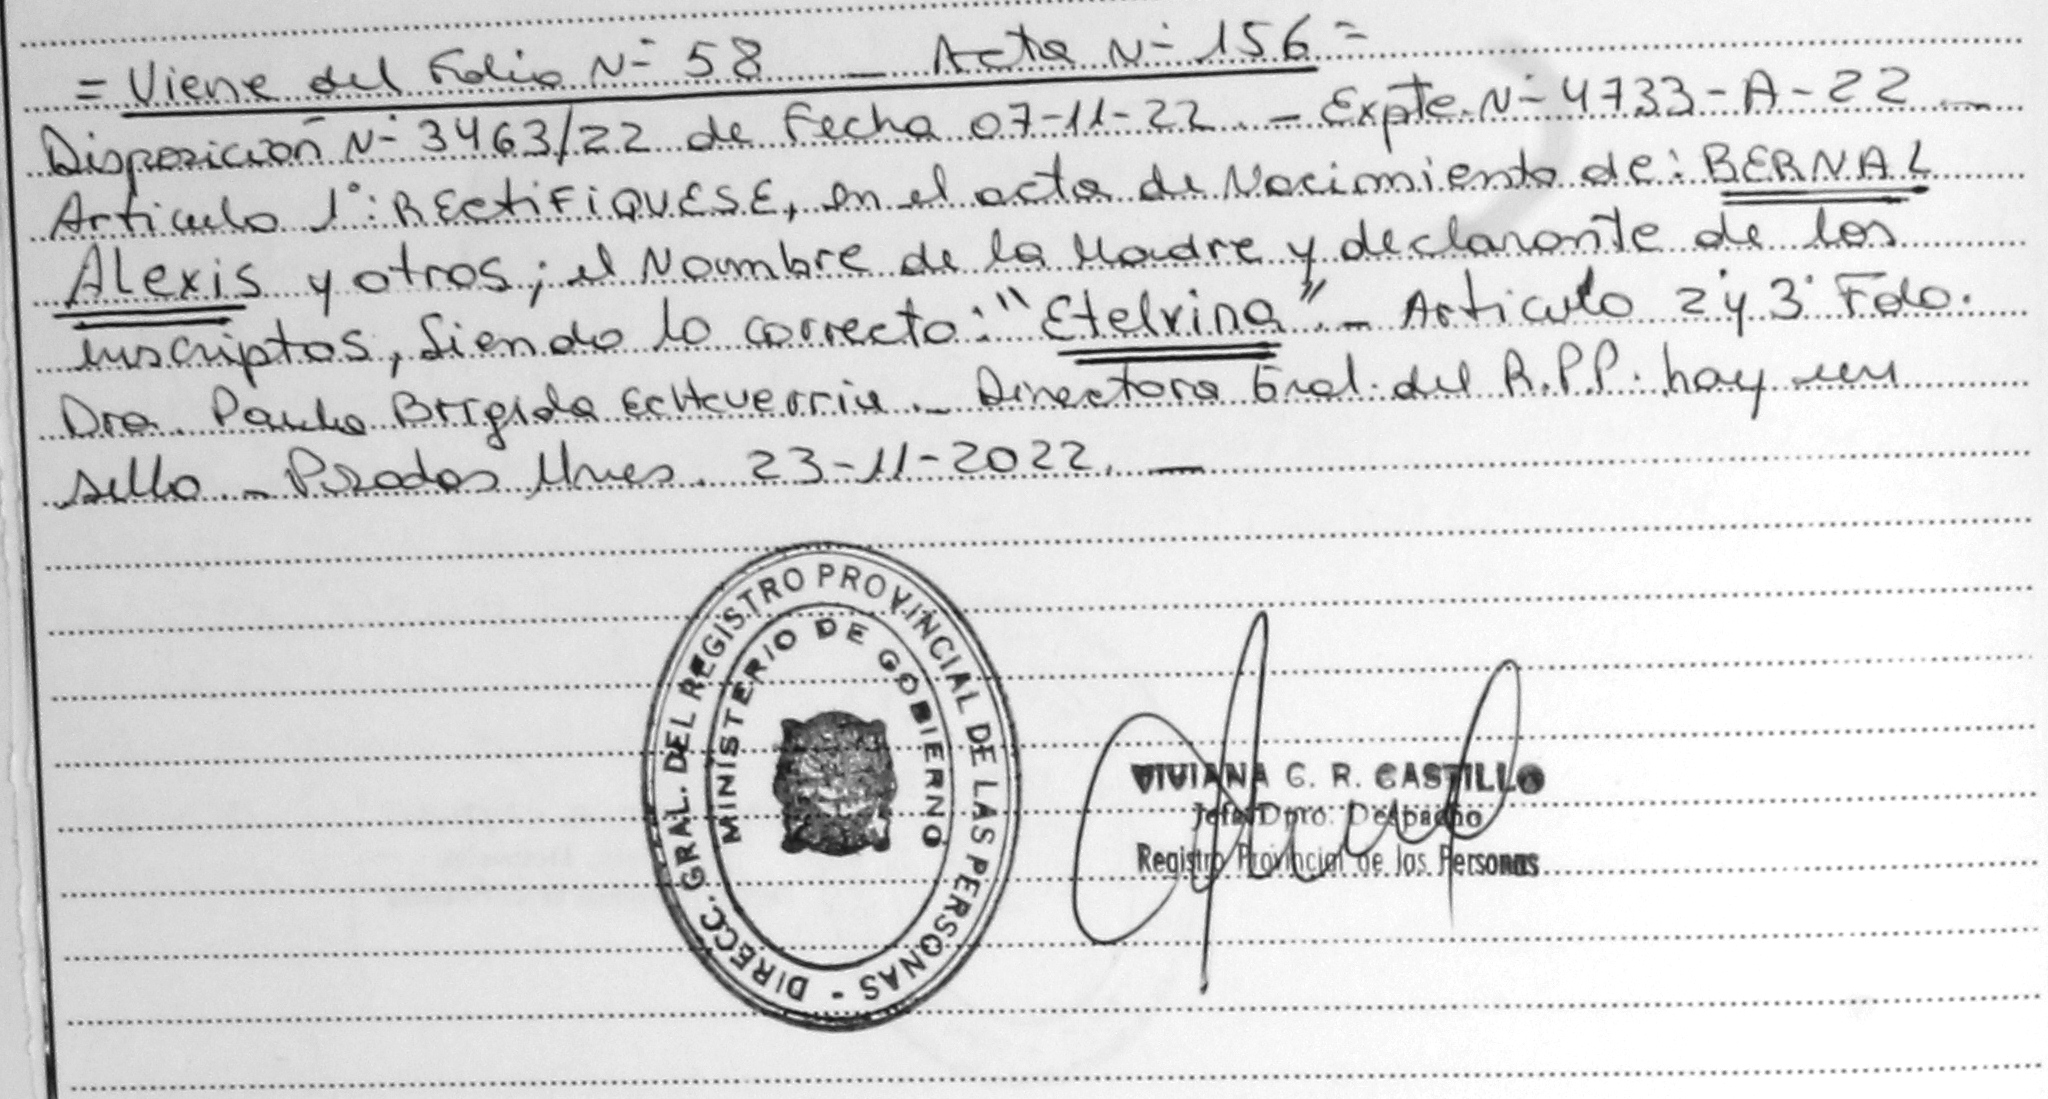 = Viene del Folio N- 58 - Acta N- 156 =
Disposición N- 3463/22 de Fecha 07-11-22. - Expte. N- 4733-A-22 -
Articulo 1°: RECtiFiQUESE, en el acta de Nacimiento de: BERNAL
Alexis y otros; el Nombre de la Madre y declarante de los
inscriptos, Siendo lo correcto: "Etelvina" - Articulo 2° y 3° Fdo.
Dra. Paula Brigida Echeverria - Directora Gral. del R.P.P. hay un
sello - Posadas Mnes. 23-11-2022. -
DIRECC. GRAL. DEL REGISTRO PROVINCIAL DE LAS PERSONAS -
MINISTERIO DE GOBIERNO
VIVIANA C. R. CASTILLO
Jefa Dpto. Despacho
Registro Provincial de las Personas